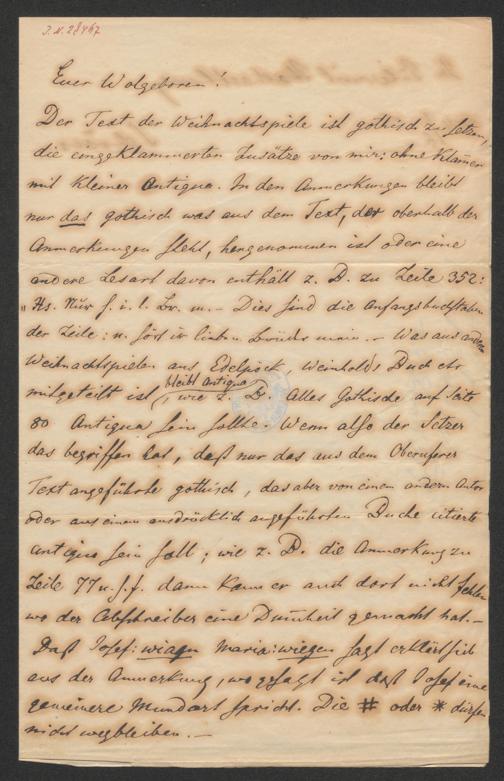 J.N. 28467
Euer Wolgeboren!
Der Text der Weihnachtspiele ist gothisch zu setzen,
die eingeklammerten Zusätze von mir: ohne Klamer
mit kleiner Antiqua. In den Anmerkungen bleibt
nur das gothisch was aus dem Text, der oberhalb der
Anmerkungen steht, hergenommen ist oder eine
andere Lesart davon enthält z. B. zu Zeile 352:
"Hs. Nur h. i. l. br. m. – Dies sind die Anfangsbuchstaben
der Zeile: n. hört ir lieben brüder mein. – Was aus andern
Weihnachtspielen aus Edelpöck, Weinholds Buch etc
mitgeteilt ist, bleibt Antiqua, wie z. B. Alles Gothische auf Seite
80 Antiqua sein sollte. Wenn also der Setzer
das begriffen hat, daß nur das aus dem Oberuferer
Text angeführte gothisch, das aber von einem andern Autor
oder aus einem ausdrücklich angeführten Buche citierte
Antiqua sein soll; wie z. B. die Anmerkung zu
Zeile 77 u.s.f. dann kann er auch dort nicht fehlen
wo der Abschreiber eine Dumheit gemacht hat. –
Daß Josef: wiagn Maria: wiegen sagt erklärt sich
aus der Anmerkung, wo gesagt ist daß Josef eine
gemeinere Mundart spricht. Die # oder * dürfen
nicht wegbleiben. –